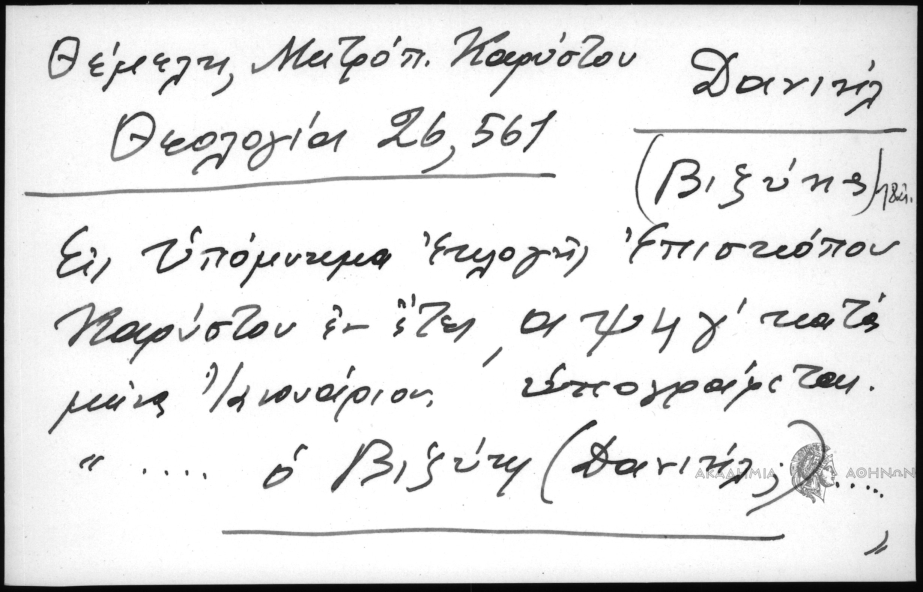 Θέμελη, Μητρόπ. Καρύστου
Θεολογία 26, 561
Δανιήλ
(Βιζύης)
Εἰς Ὑπόμνημα ἐκλογῆς Ἐπισκόπου
Καρύστου ἐν ἔτει ͵αψμγ΄ κατὰ
μῆνα Ἰανουάριον, ὑπογράφεται.
« .... ὁ Βιζύης (Δανιήλ;) .....
»
ΑΚΑΔΗΜΙΑ ΑΘΗΝΩΝ